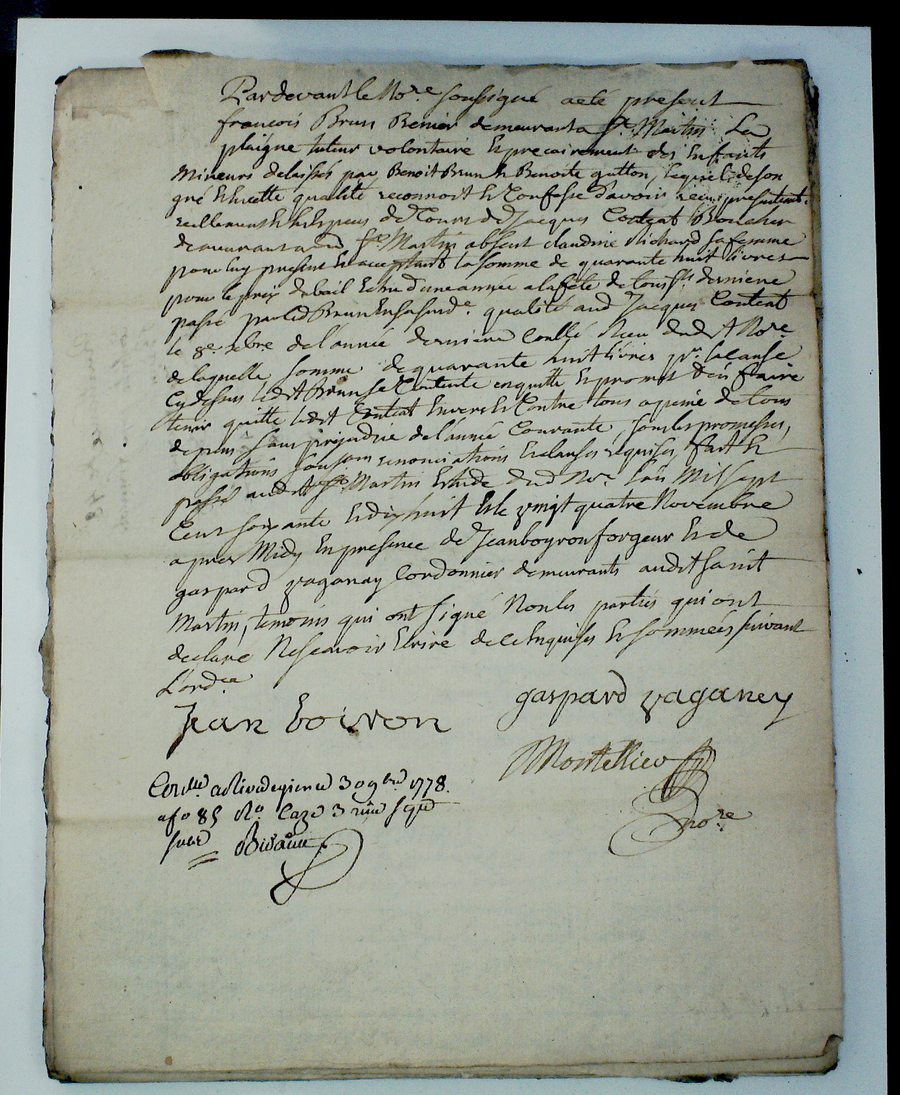 Pardevant le No.re soussigné a été présent
francois Brun Benier demeurant a St. Martin La
plaigne tuteur volontaire et precairement des Enfants
Mineurs delaissés par Benoit Brun et Benoite gutton, lequel de son
gré et dicte qualité reconnoit et Confesse d'avoir reçu presentent.
reellement et espeus de Cours de Jacques Contat Boucher
demeurant aud St. Martin absent claudine Richard sa femme
pour luy presente et acceptant la somme de quarante huit livres
pour le prix de bail echu d'une année a la fete de touss.ts derniere
passé par led Brun en sa susd.e qualité aud Jacques Contat
le 8.e xbre de l'année derniere Conllé Reçu dud No.re
de laquelle somme de quarante huit livres pr. la cause
Cy dessus led.t Brun se Contente en quitte et promet d'en faire
tenir quitte led.t Contat Envers et Contre tous a peine de tous
de pens sans prejudice de l'année Courante sous les promesses,
obligations soum renonciations et clauses requises, fait et
passé aud.t St. Martin Etude dud No.re l'an Mil sept
Cent soixante et dix huit et le vingt quatre Novembre
apres Midy En presence de Jean boyron forgeur et de
gaspard vaganay Cordonnier demeurants audit saint
Martin, temoins qui ont signé Non les parties qui ont
declaré Ne sçavoir Ecrire de ce Enquises et sommées suivant
L'ord.ce
Jean boiron gaspard vaganey
Montellier
no.re
Con.lle a Rivedegier ce 30 9bre 1778.
a fo 85 Ro. Caze 3